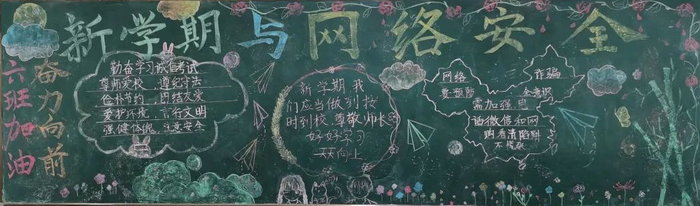 新学期与网络安全
六班加油
奋力向前
勤奋学习诚信考试
尊师爱校、遵纪守法
俭朴节约、团结友爱
爱护环境、言行文明
强健体魄、注意安全
新学期,我
们应当做到按
时到校 尊敬师长
好好学习
天天向上
网络 诈骗
要预防
需加强思
访微信和网
购看清陷阱